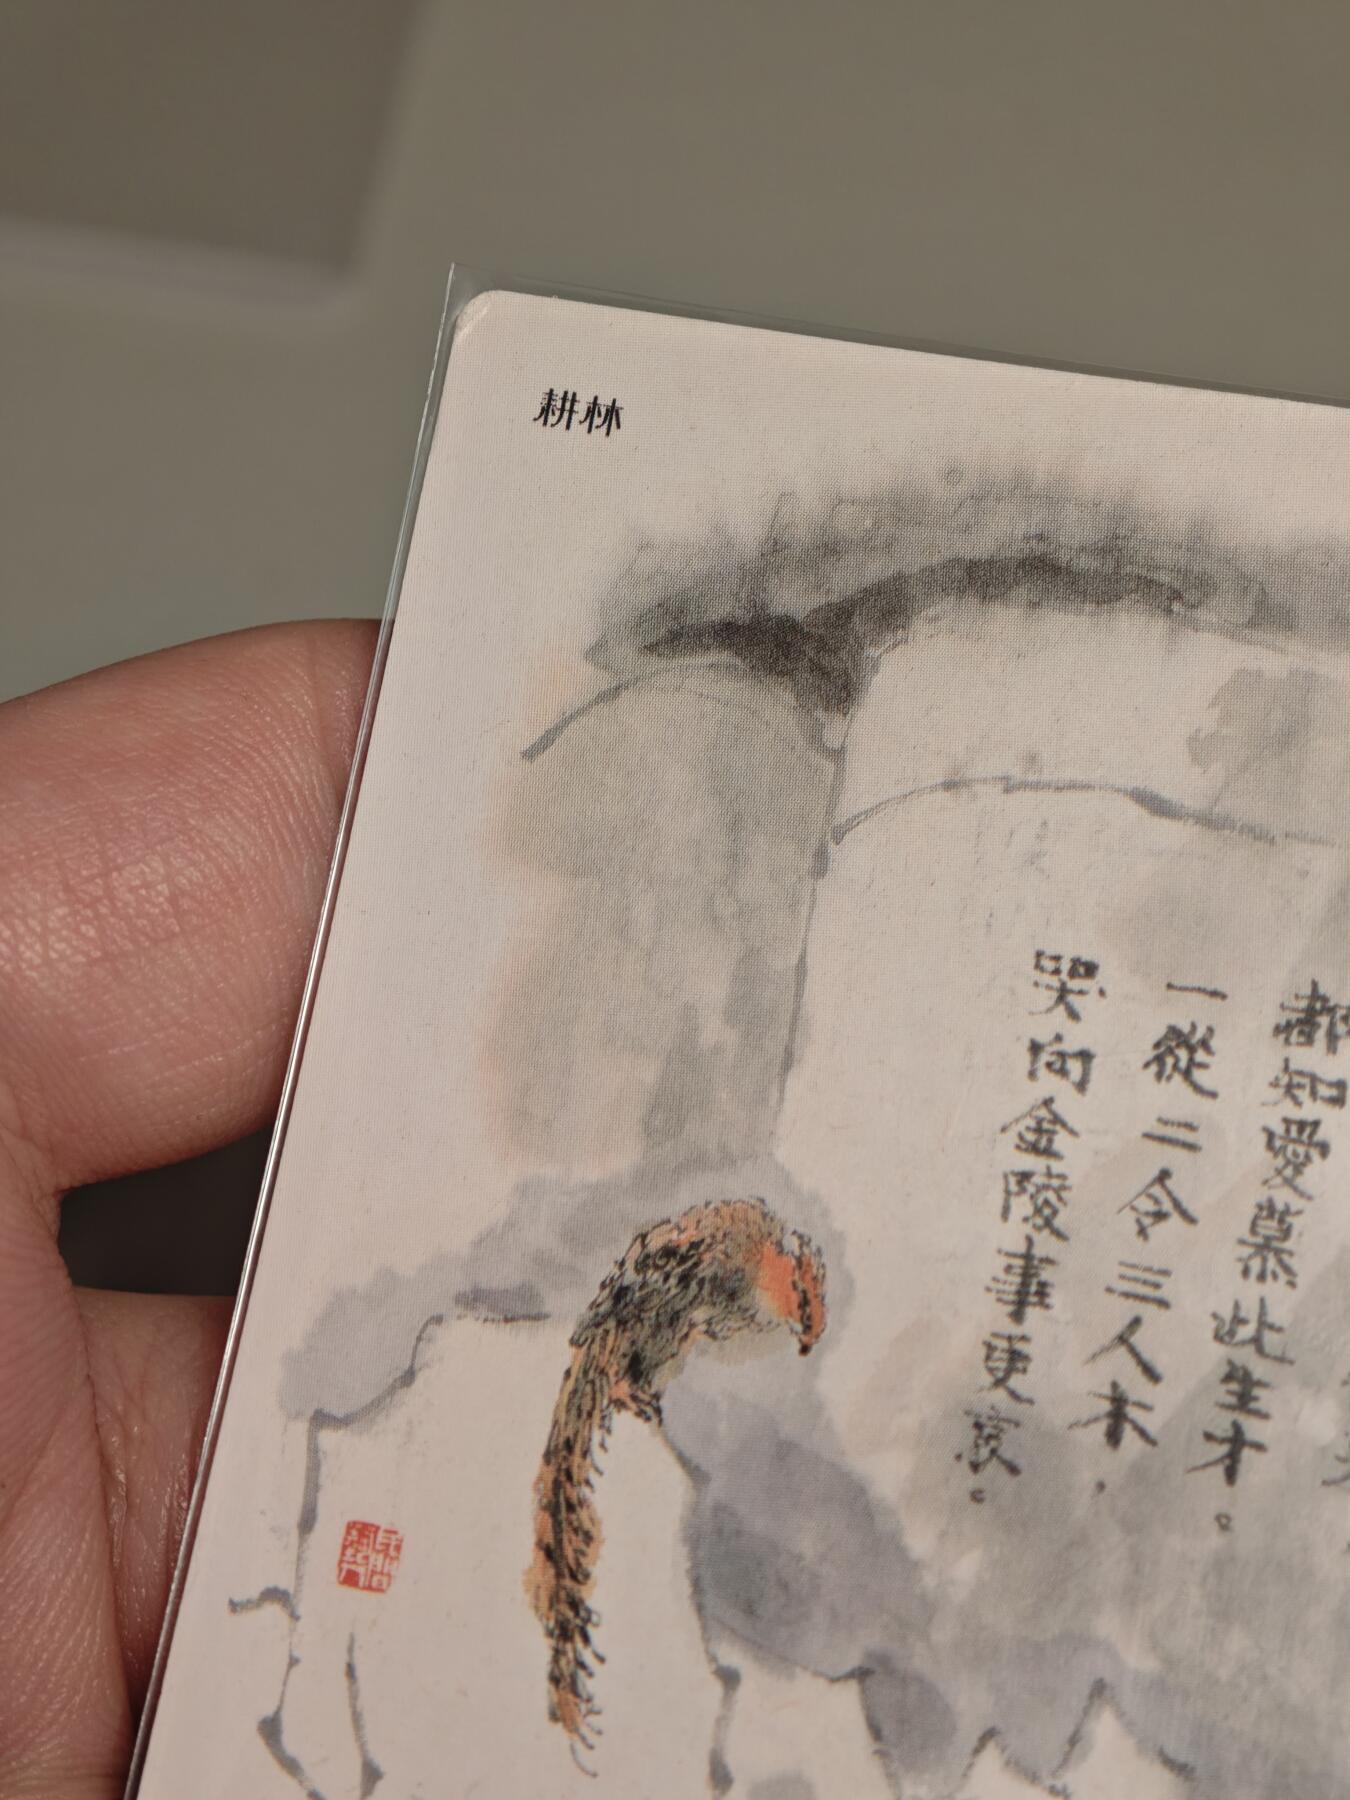 耕林
都知愛慕此生才。
一從二令三人木，
哭向金陵事更哀。